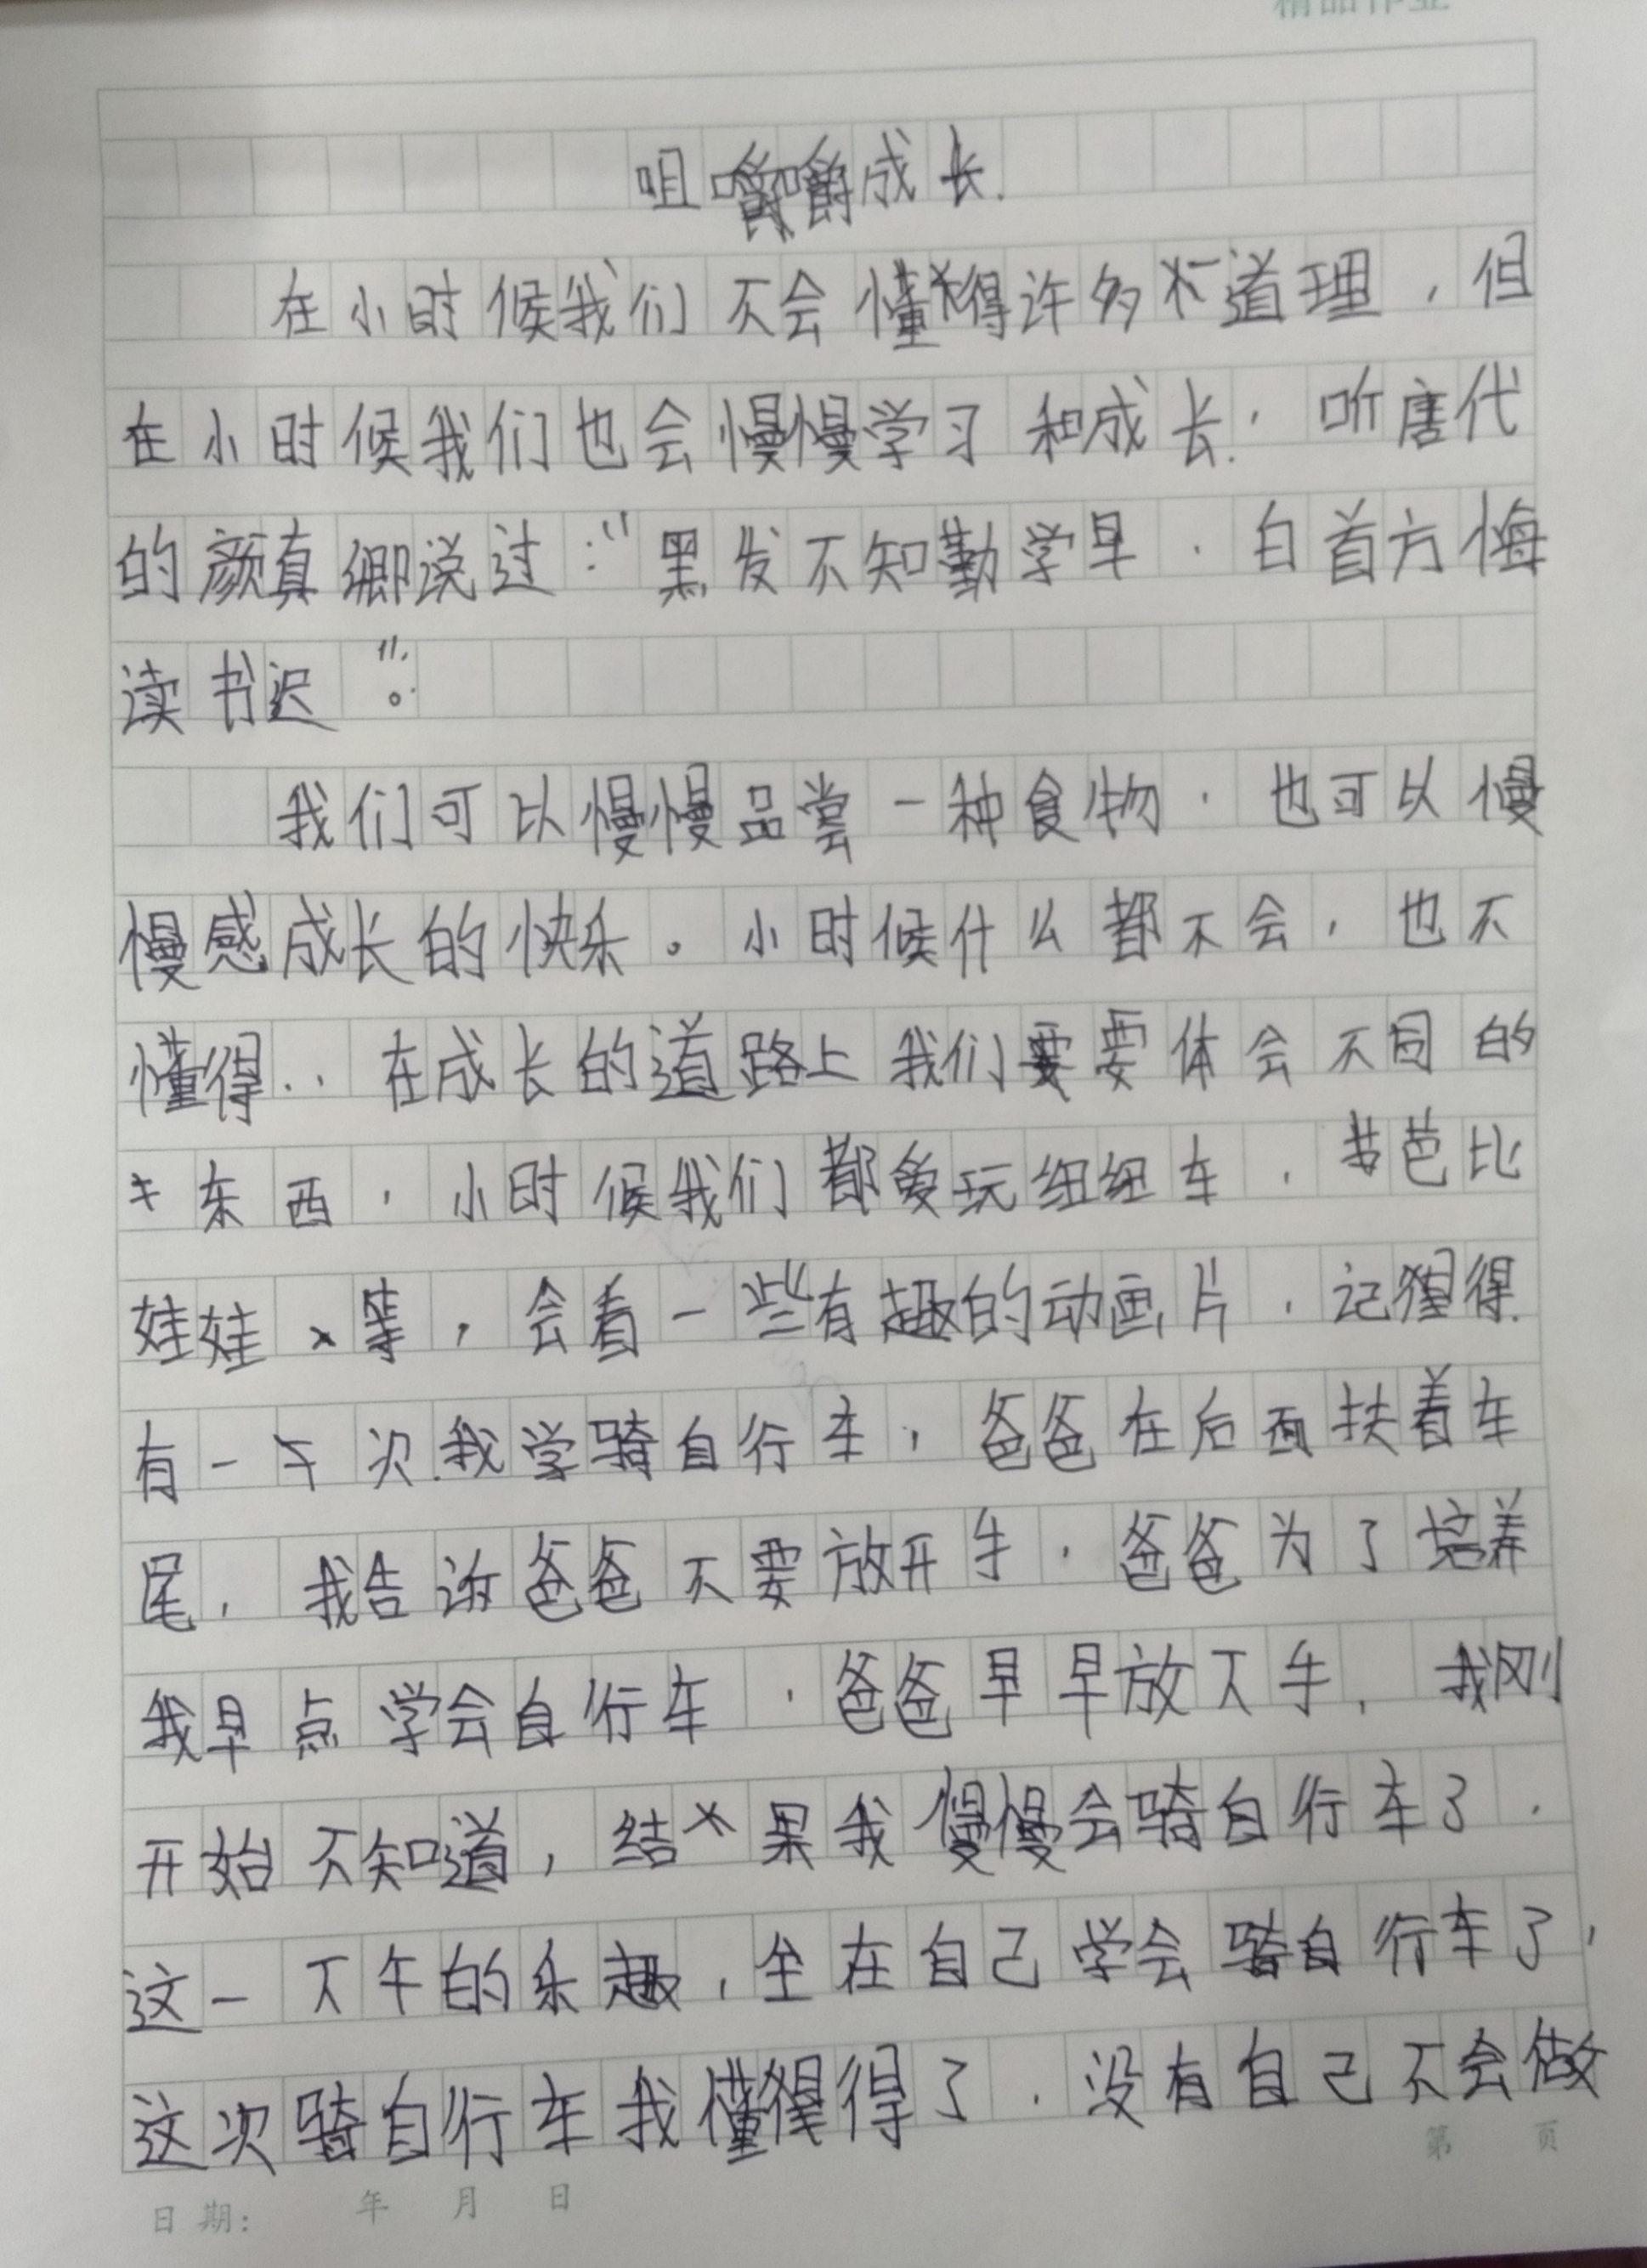 精品作业
咀嚼嚼成长.
在小时候我们不会懂得许多道理，但
在小时候我们也会慢慢学习和成长. 听唐代
的颜真卿说过："黑发不知勤学早，白首方悔
读书迟"。
我们可以慢慢品尝一种食物，也可以慢
慢感成长的快乐。小时候什么都不会，也不
懂得..在成长的道路上我们要要体会不同的
东西，小时候我们都爱玩纽纽车，芭比
娃娃等，会看一些有趣的动画片，记得
有一次我学骑自行车，爸爸在后面扶着车
尾，我告诉爸爸不要放开手，爸爸为了培养
我早点学会自行车，爸爸早早放下手，我刚
开始不知道，结果我慢慢会骑自行车了，
这一下午的乐趣，全在自己学会骑自行车了，
这次骑自行车我懂得了，没有自己不会做
第 页
日期： 年 月 日